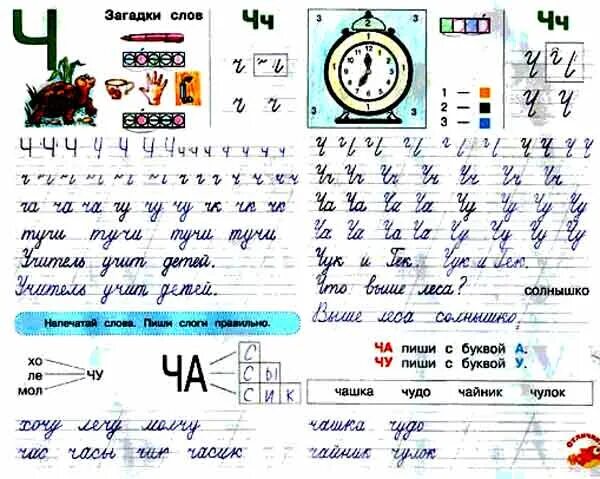 Ч
Загадки слов
Чч
ча ча ча чу чу чу чк чк чк
тучи тучи тучи тучи
Учитель учит детей.
Учитель учит детей.
Напечатай слова. Пиши слоги правильно.
хо
ле
мол
ЧУ
ЧА
С
С Ы
С И К
хочу лечу молчу
час часы часик
Чч
3 12 3
3 1 3
1 —
2 —
3 —
Чч Чч Чч Чч Чч
Ча Ча Ча Ча Чу Чу Чу Чу
Ча Ча Ча Ча Чу Чу Чу Чу
Чук и Гек. Чук и Гек.
Что выше леса? солнышко
Выше леса солнышко.
ЧА пиши с буквой А.
ЧУ пиши с буквой У.
чашка чудо чайник чулок
чашка чудо
чайник чулок